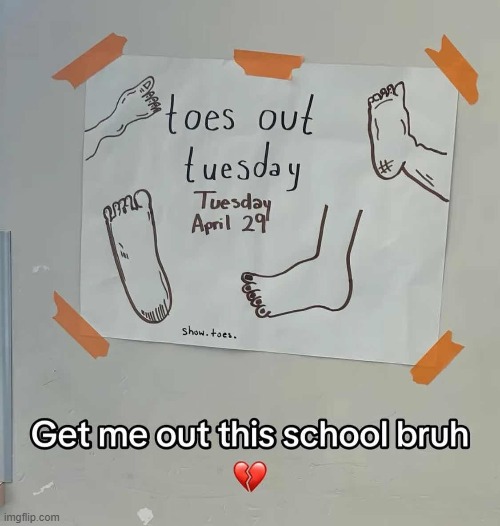 toes out
tuesday
Tuesday
April 29
show.toes.
Get me out this school bruh
💔
imgflip.com